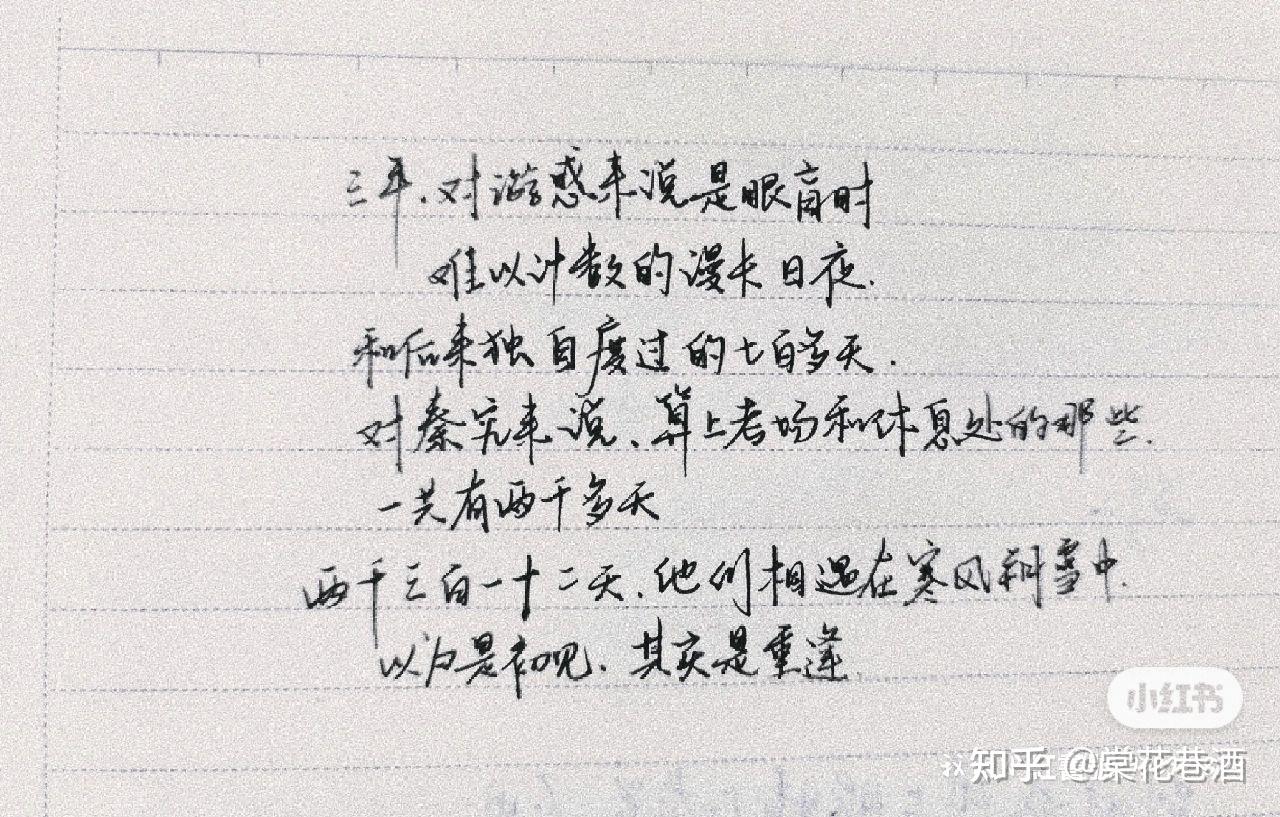 三年，对游惑来说是眼盲时
难以计数的漫长日夜，
和后来独自度过的七百多天，
对秦究来说、算上考场和休息处的那些，
一共有两千多天
两千三百一十二天，他们相遇在寒风朔雪中，
以为是初见、其实是重逢
小红书
知乎 @棠花巷酒